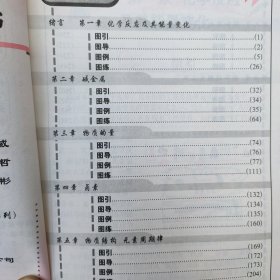 绪言 第一章 化学反应及其能量变化
图引 (1)
图导 (2)
图例 (5)
图练 (26)
第二章 碱金属
图引 (32)
图导 (34)
图例 (35)
图练 (64)
第三章 物质的量
图引
图导
图例
图练 (111)
第四章 卤素
图引 (132)
图导 (134)
图例 (135)
图练 (160)
第五章 物质结构 元素周期律
图引 (169)
图导 (172)
图例 (173)
图练 (204)
威
哲
彬
列)